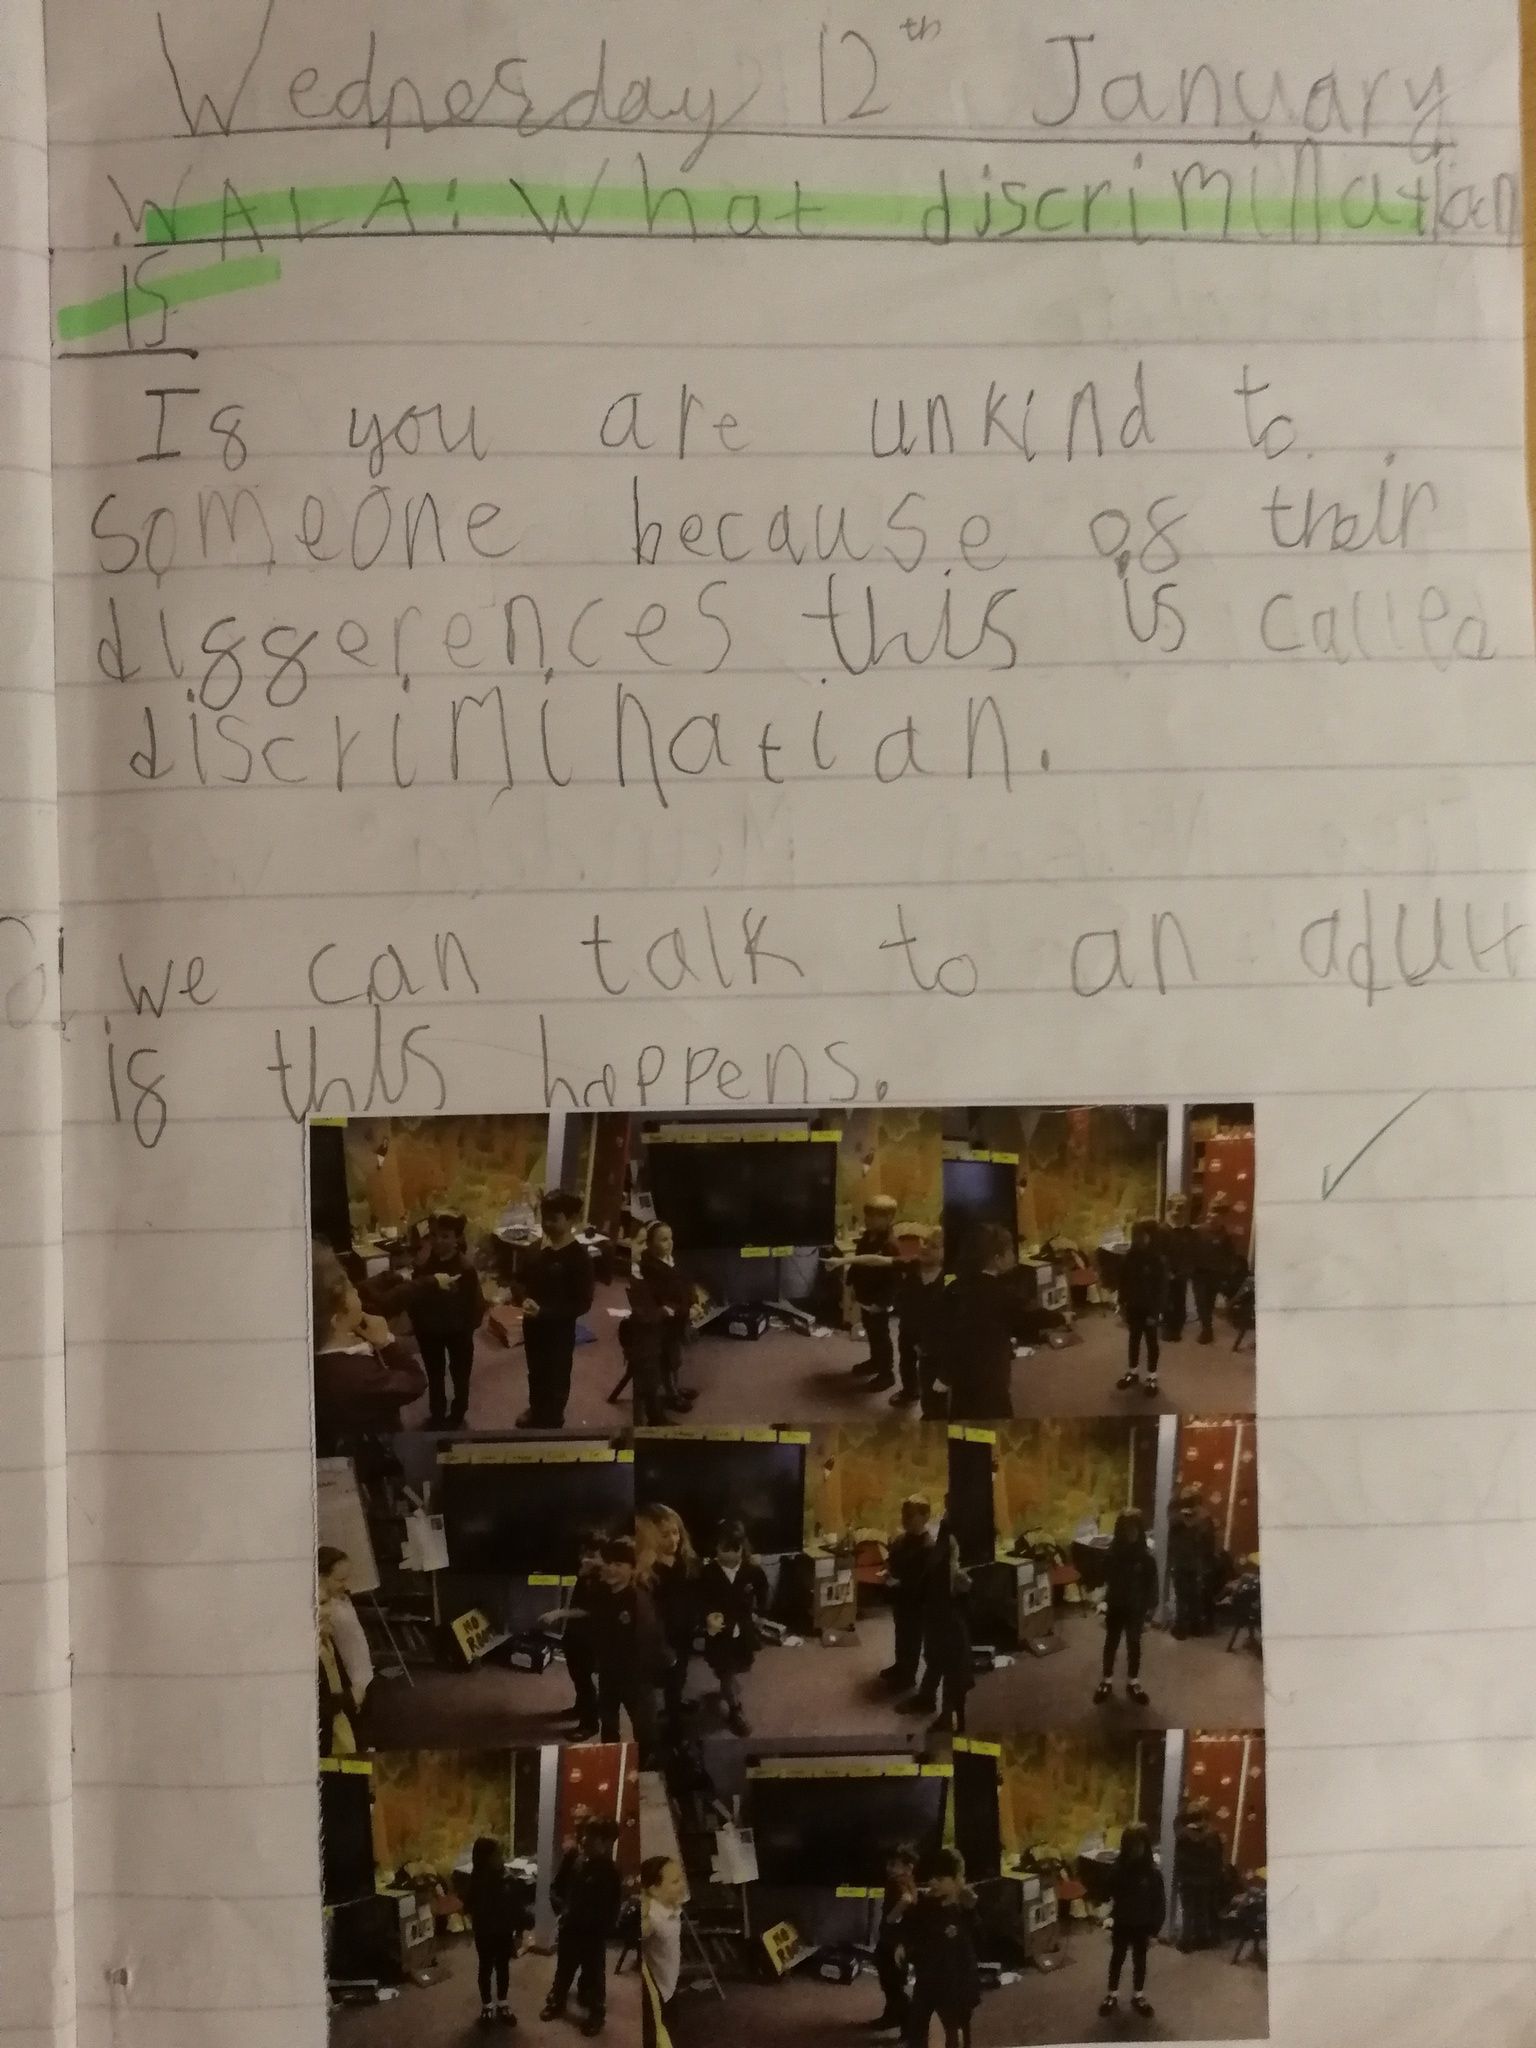 Wednesday 12th January
WALA: What discrimination
is
If you are unkind to
someone because of their
differences this is called
discrimination.
we can talk to an adult
if this happens.
NO
ROOM